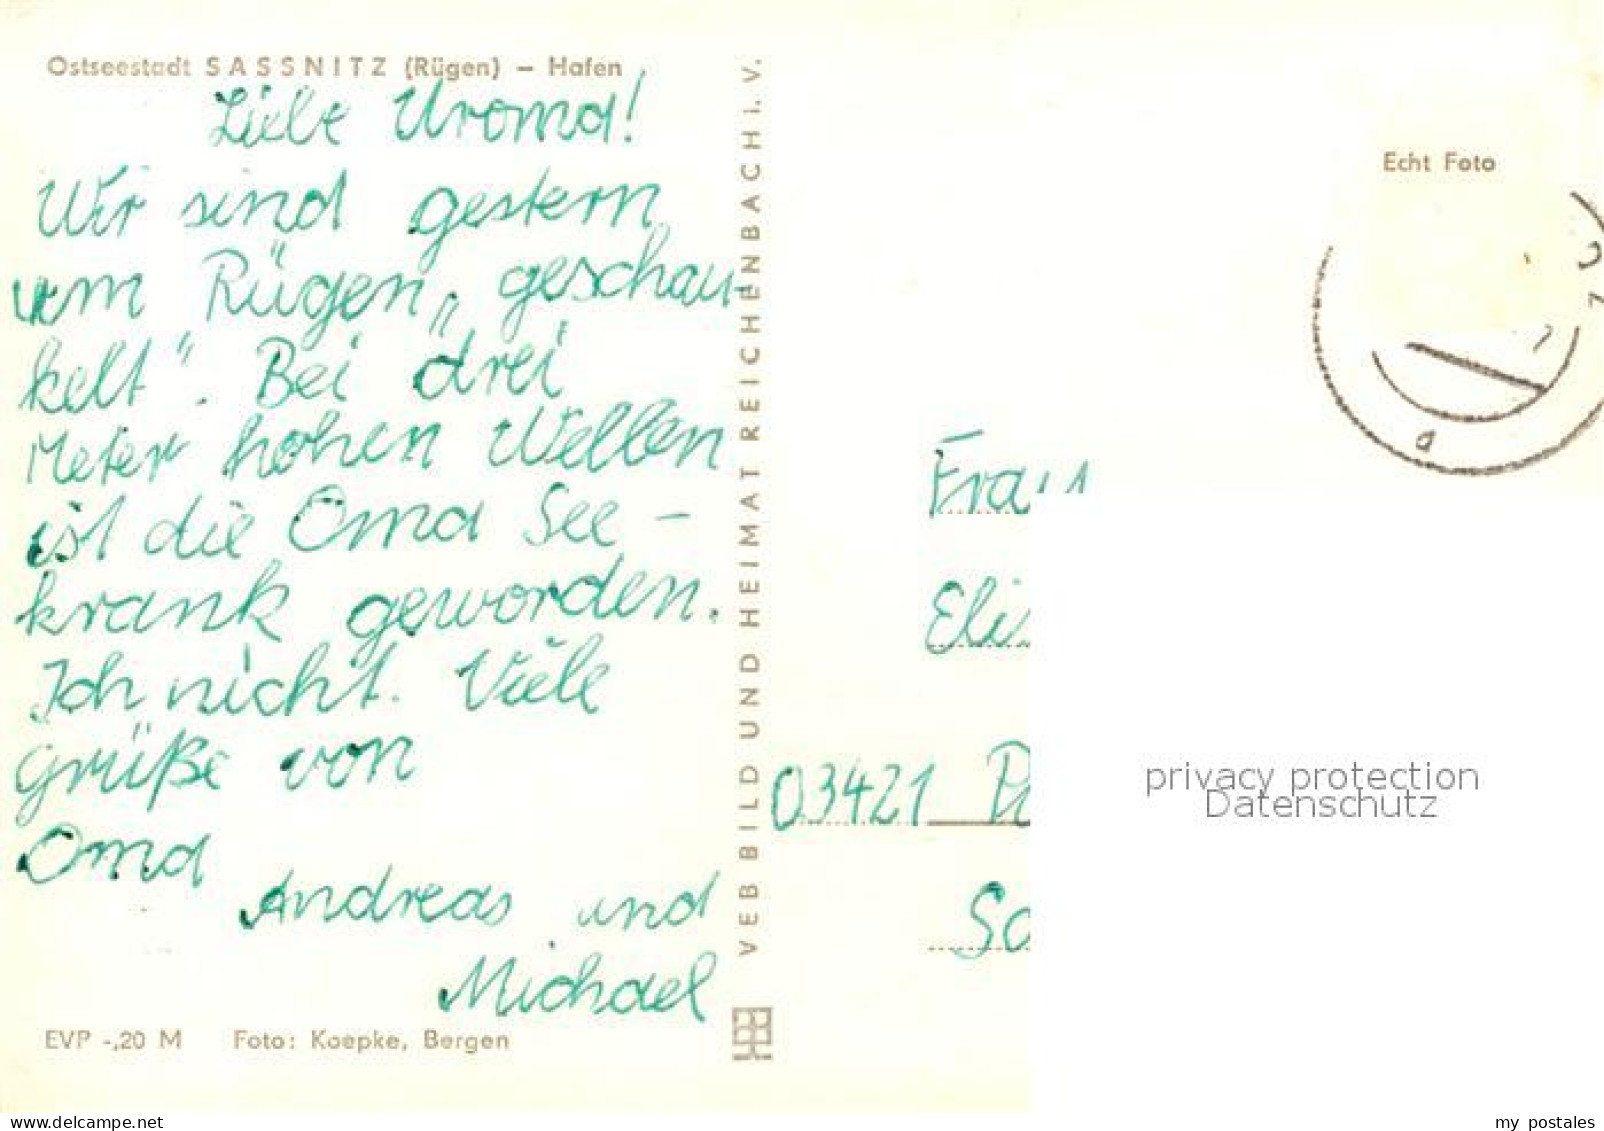 Ostseestadt SASSNITZ (Rügen) – Hafen
Liebe Uroma!
Wir sind gestern
um Rügen „geschau-
kelt". Bei drei
Meter hohen Wellen
ist die Oma See-
krank geworden.
Ich nicht. Viele
Grüße von
Oma
Andreas und
Michael
EVP -,20 M Foto: Koepke, Bergen
VEB BILD UND HEIMAT REICHENBACH i. V.
Echt Foto
a
Frau
03421
privacy protection
Datenschutz
delcampe.net
my_postales